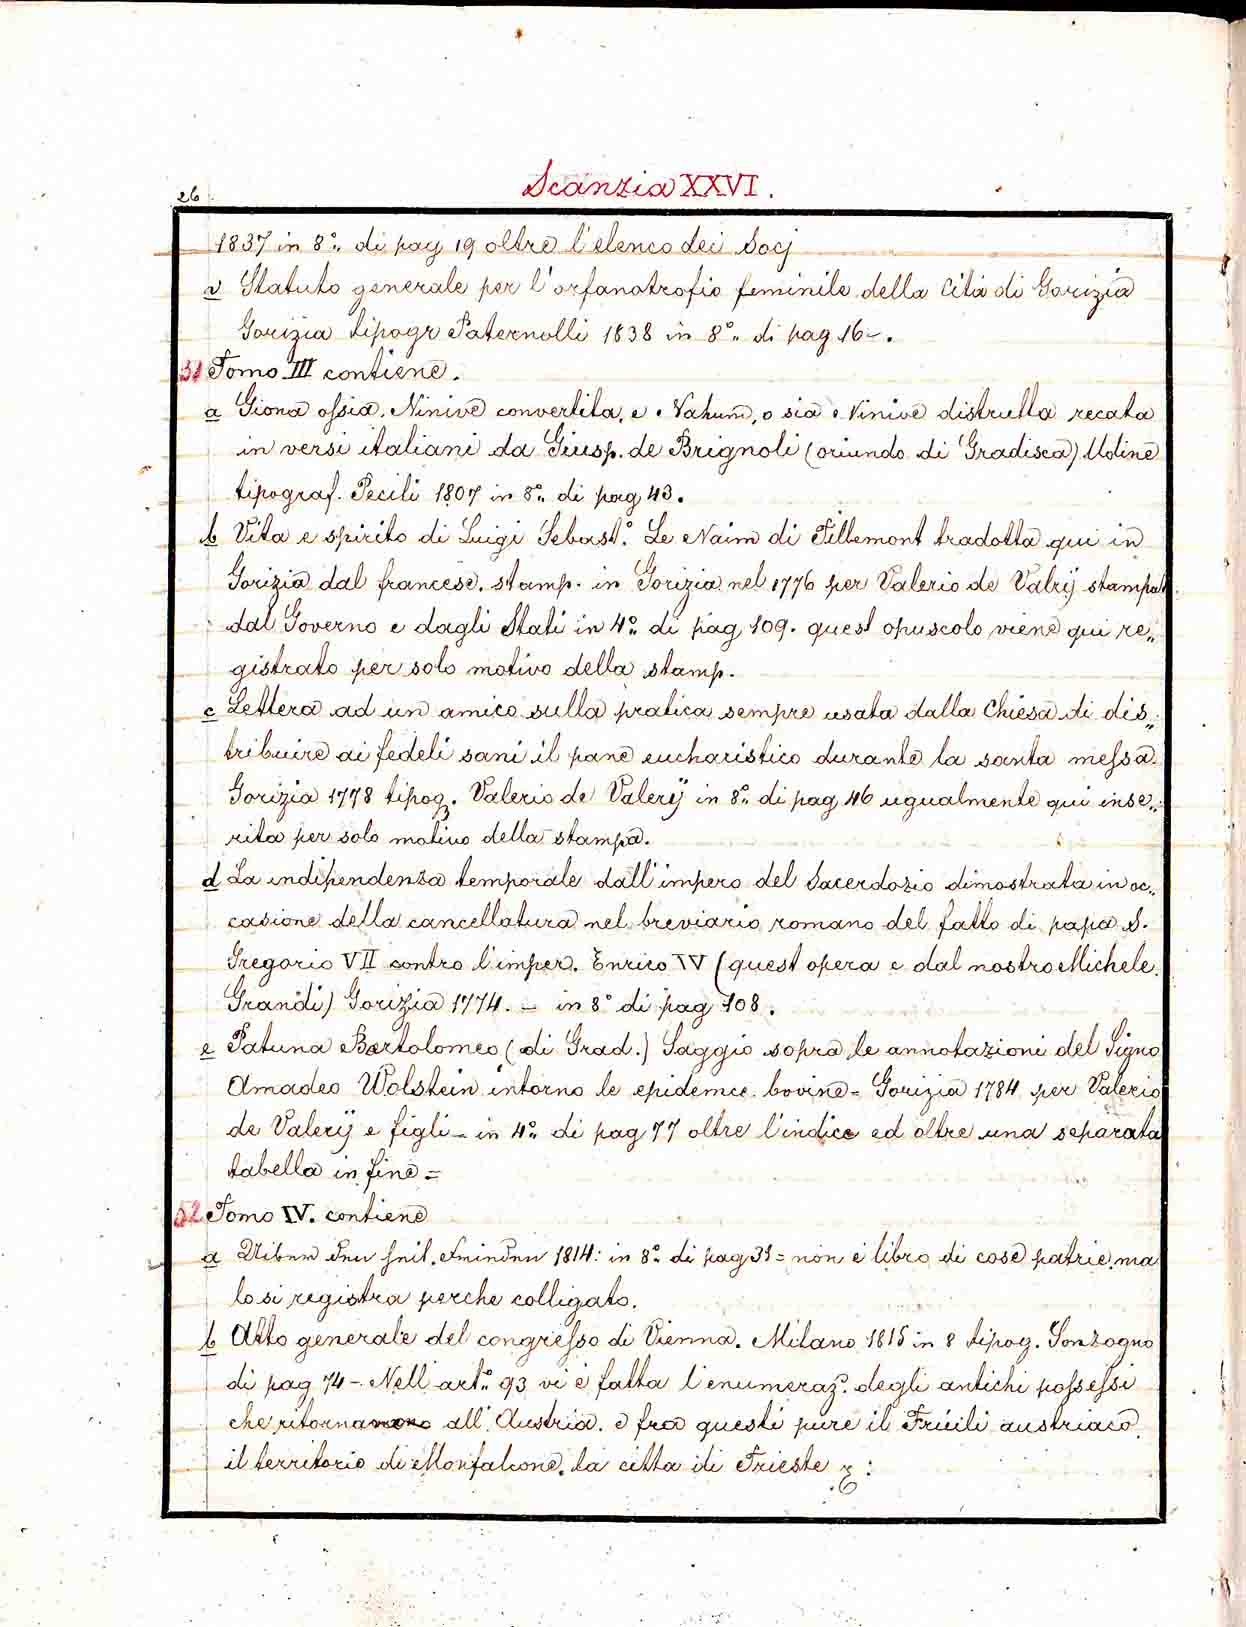 26
Scanzia XXVI.
1837 in 8º di pag 19 oltre l'elenco dei Socj
v Statuto generale per l'orfanotrofio feminile della Cità di Gorizia
Gorizia tipogr Paternolli 1838 in 8º di pag 16-.
51 Tomo III contiene.
a Giona ossia, Ninive convertita, e Nahum, o sia Ninive distrutta recata
in versi italiani da Giusp. de Brignoli (oriundo di Gradisca) Udine
tipograf. Pecili 1807 in 8º di pag 43.
b Vita e spirito di Luigi Sebastº Le Naim di Tillemont tradotta qui in
Gorizia dal francese. stamp. in Gorizia nel 1776 per Valerio de Valrÿ stampat
dal Governo e dagli Stati in 4º di pag 109. quest opuscolo viene qui re„
gistrato per solo motivo della stamp.
c Lettera ad un amico sulla pratica sempre usata dalla Chiesa di dis„
tribuire ai fedeli sani il pane eucharistico durante la santa messa.
Gorizia 1778 tipog. Valerio de Valerÿ in 8º di pag 46 ugualmente qui inse„
rita per solo motivo della stampa.
d La indipendenza temporale dall'impero del Sacerdozio dimostrata in oc„
casione della cancellatura nel breviario romano del fatto di papa S.
Gregorio VII contro l'imper. Enrico IV (quest opera e dal nostro Michele
Grandi) Gorizia 1774. - in 8º di pag 108.
e Patuna Bartolomeo (di Grad.) Saggio sopra le annotazioni del Signo
Amadeo Wolstein intorno le epidemee bovine = Gorizia 1784 per Valerio
de Valerÿ e figli - in 4º di pag 77 oltre l'indice ed oltre una separata
tabella in fine =
52 Tomo IV. contiene
a 1814: in 8º di pag 31 = non è libro di cose patrie, ma
lo si registra perche colligato.
b Atto generale del congresso di Vienna. Milano 1815 in 8 tipog. Sonzogno
di pag 74 -. Nell artº 93 vi è fatta l'enumerazº degli antichi possessi
che ritornarono all'Austria. e fra questi pure il Friuli austriaco
il territorio di Monfalcone, la citta di Trieste